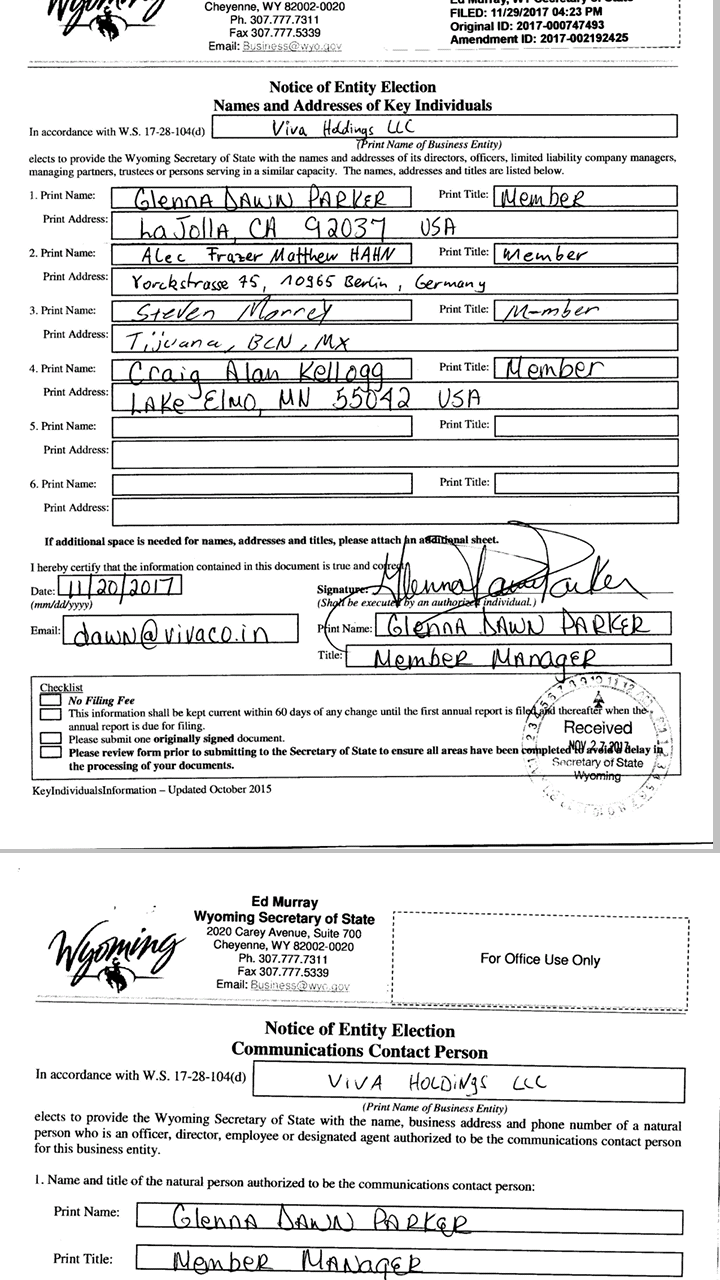 Wyoming
Cheyenne, WY 82002-0020
Ph. 307.777.7311
Fax 307.777.5339
Email: Business@wyo.gov
Ed Murray, WY Secretary of State
FILED: 11/29/2017 04:23 PM
Original ID: 2017-000747493
Amendment ID: 2017-002192425
Notice of Entity Election
Names and Addresses of Key Individuals
In accordance with W.S. 17-28-104(d) Viva Holdings LLC
(Print Name of Business Entity)
elects to provide the Wyoming Secretary of State with the names and addresses of its directors, officers, limited liability company managers,
managing partners, trustees or persons serving in a similar capacity. The names, addresses and titles are listed below.
1. Print Name: Glenna Dawn Parker Print Title: Member
Print Address: La Jolla, CA 92037 USA
2. Print Name: Alec Frazer Matthew HAHN Print Title: Member
Print Address: Yorckstrasse 75, 10965 Berlin, Germany
3. Print Name: Steven Print Title: Member
Print Address: Tijuana, BCN, MX
4. Print Name: Craig Alan Kellogg Print Title: Member
Print Address: LAKE ELMO, MN 55042 USA
5. Print Name: Print Title:
Print Address:
6. Print Name: Print Title:
Print Address:
If additional space is needed for names, addresses and titles, please attach an additional sheet.
I hereby certify that the information contained in this document is true and correct.
Date: 11/20/2017 Signature: Glenna Dawn Parker
(mm/dd/yyyy) (Shall be executed by an authorized individual.)
Email: dawn@vivaco.in Print Name: Glenna Dawn Parker
Title: Member Manager
Checklist
No Filing Fee
This information shall be kept current within 60 days of any change until the first annual report is filed and thereafter when the
annual report is due for filing.
Please submit one originally signed document.
Please review form prior to submitting to the Secretary of State to ensure all areas have been completed to avoid a delay in
the processing of your documents.
Received
NOV 27 2017
Secretary of State
Wyoming
KeyIndividualsInformation – Updated October 2015
Wyoming
Ed Murray
Wyoming Secretary of State
2020 Carey Avenue, Suite 700
Cheyenne, WY 82002-0020
Ph. 307.777.7311
Fax 307.777.5339
Email: Business@wyo.gov
For Office Use Only
Notice of Entity Election
Communications Contact Person
In accordance with W.S. 17-28-104(d) VIVA HOLDINGS LLC
(Print Name of Business Entity)
elects to provide the Wyoming Secretary of State with the name, business address and phone number of a natural
person who is an officer, director, employee or designated agent authorized to be the communications contact person
for this business entity.
1. Name and title of the natural person authorized to be the communications contact person:
Print Name: Glenna Dawn Parker
Print Title: Member Manager